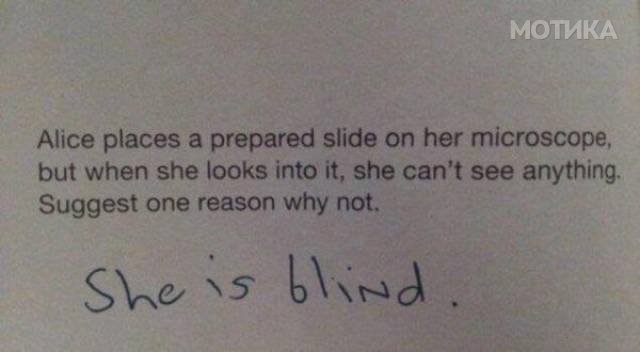 МОТИКА
Alice places a prepared slide on her microscope,
but when she looks into it, she can't see anything.
Suggest one reason why not.
She is blind.